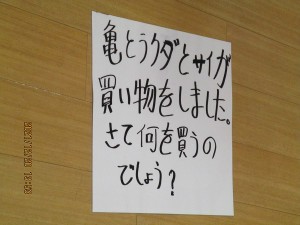 亀とラクダとサイが
買い物をしました。
さて何を買うの
でしょう?